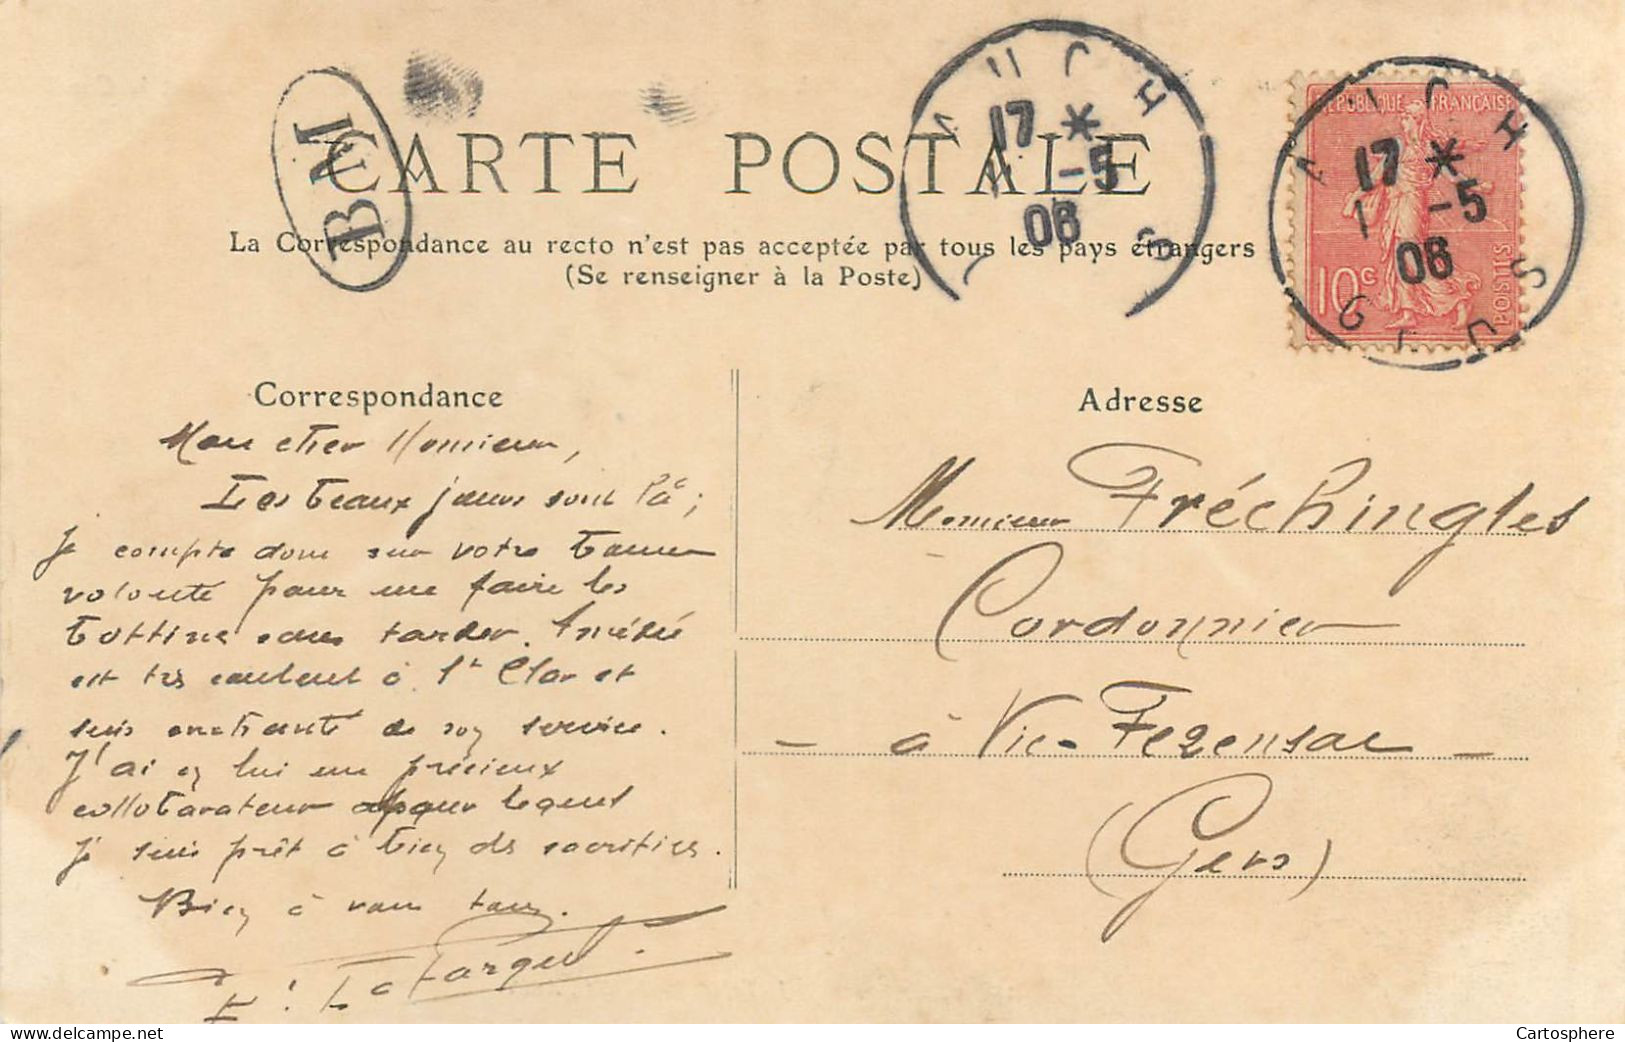 BM
CARTE POSTALE
La Correspondance au recto n'est pas acceptée par tous les pays étrangers
(Se renseigner à la Poste)
AUCH
17 *
1 -5
06
S
REPUBLIQUE FRANÇAISE
10c
POSTES
AUCH
17 *
1 -5
06
GERS
Correspondance
Mon cher Monsieur,
Les beaux jours sont là ;
Je compte donc sur votre bonne
volonté pour me faire les
bottines sans tarder. Amédée
est très content à St Clar et
suis enchanté de son service.
J'ai en lui un précieux
collaborateur pour lequel
je suis prêt à bien des sacrifices.
Bien à vous tous.
Adresse
Monsieur Fréchingles
Cordonnier
- à Vic-Fezensac -
(Gers)
Cartosphere